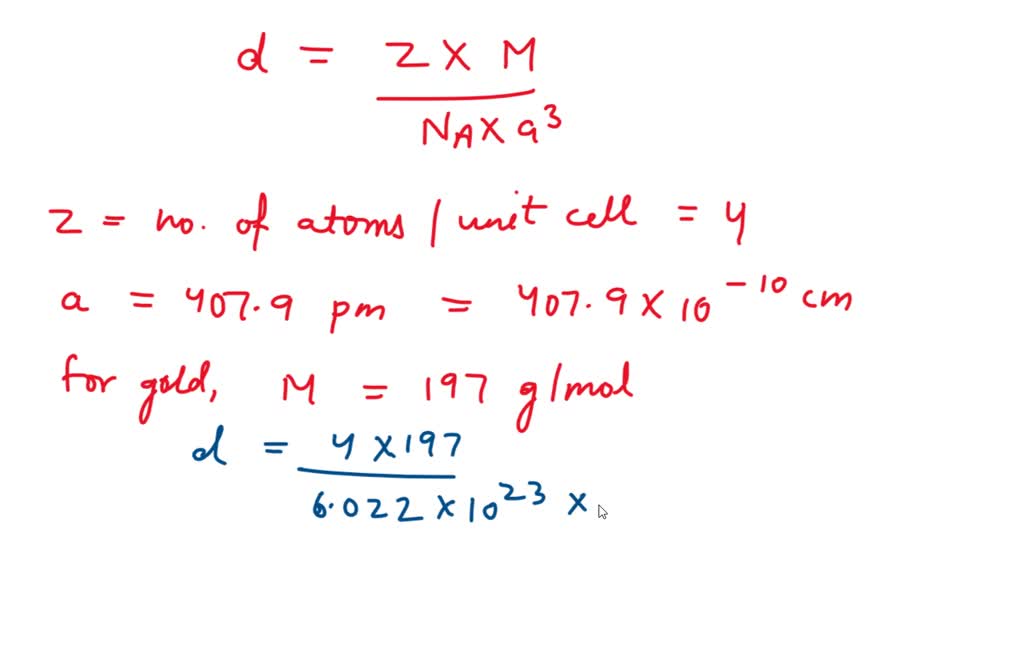 d = Z × M
N_A × a³
Z = no. of atoms / unit cell = 4
a = 407.9 pm = 407.9 × 10⁻¹⁰ cm
for gold, M = 197 g/mol
d = 4 × 197
6.022 × 10²³ ×